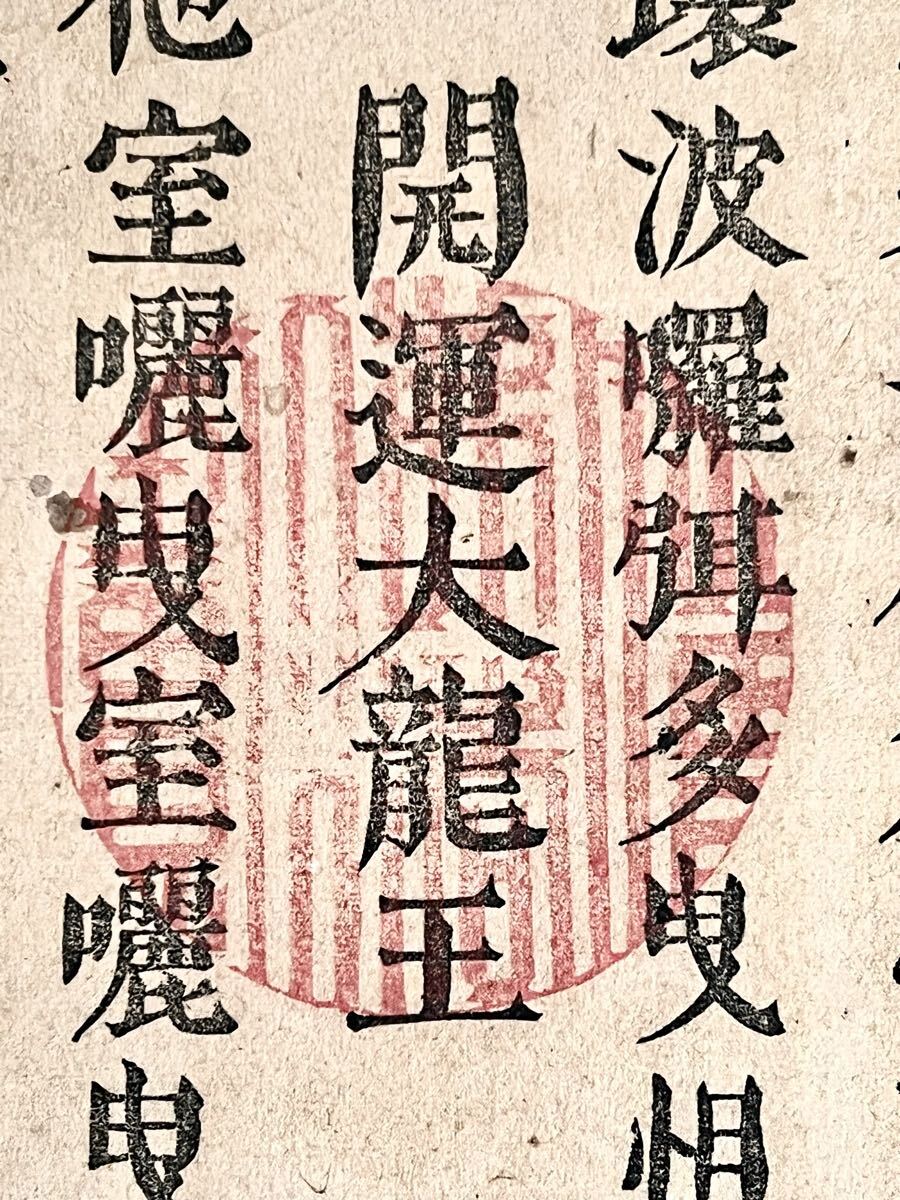 波囉弭多曳怛
開運大龍王
他室囇曳室囇曳